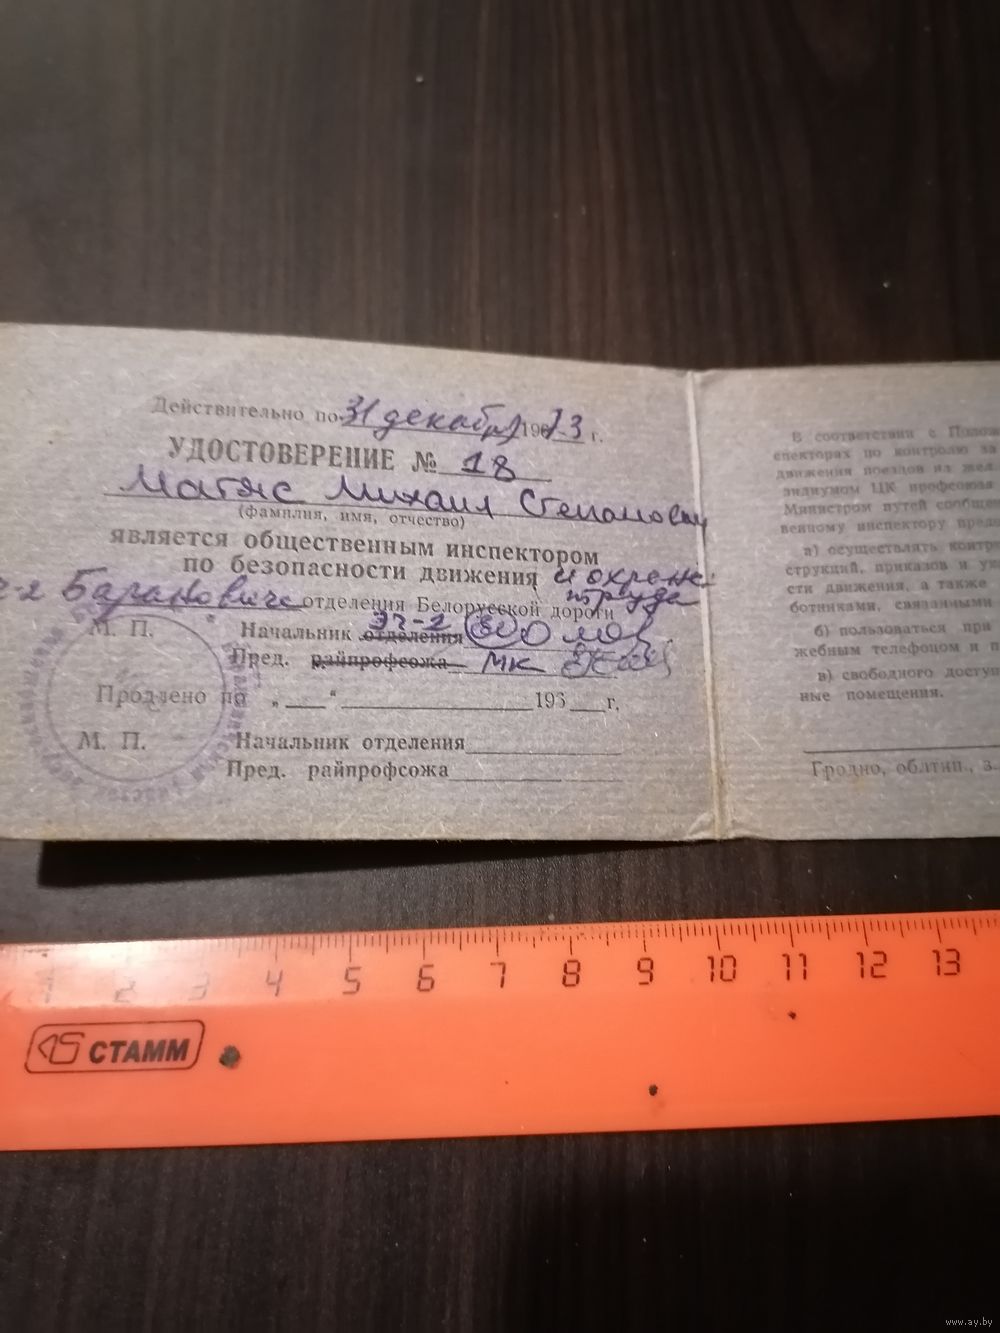 Действительно по 31 декабря 1973 г.
УДОСТОВЕРЕНИЕ № 18
Матяс Михаил Степанович
(фамилия, имя, отчество)
является общественным инспектором
по безопасности движения и охране
труда
Барановичс отделения Белорусской дороги
М. П. Начальник отделения ЭЧ-2
Пред. райпрофсожа МК
Продлено по „ “ 193 г.
М. П. Начальник отделения
Пред. райпрофсожа
В соответствии с
спекторах по контролю за
движения поездов на
зидиумом ЦК профсоюза
Министром путей
венному инспектору
а) осуществлять
струкций, приказов и
сти движения, а также
ботниками, связанными
б) пользоваться при
жебным телефоном и
в) свободного
ные помещения.
Гродно, облтип., з.
1 2 3 4 5 6 7 8 9 10 11 12 13
СТАММ
www.ay.by